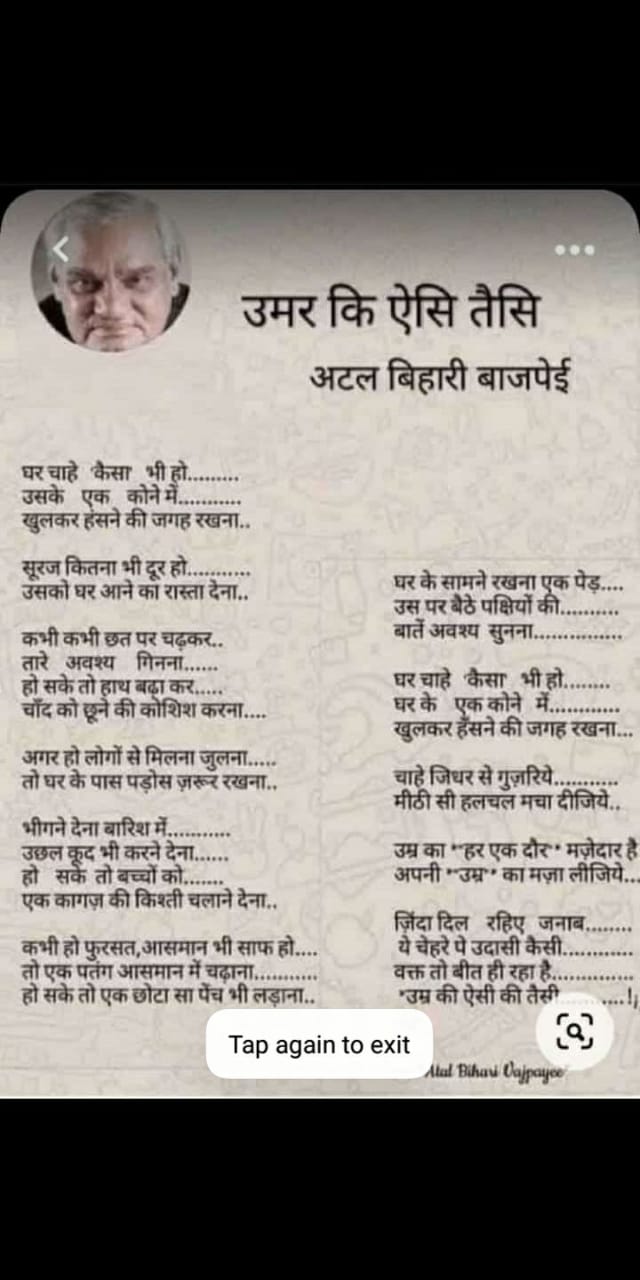 उमर कि ऐसि तैसि
अटल बिहारी बाजपेई
घर चाहे 'कैसा' भी हो.........
उसके एक कोने में...........
खुलकर हंसने की जगह रखना..
सूरज कितना भी दूर हो...........
उसको घर आने का रास्ता देना..
कभी कभी छत पर चढ़कर..
तारे अवश्य गिनना......
हो सके तो हाथ बढ़ा कर.....
चाँद को छूने की कोशिश करना....
अगर हो लोगों से मिलना जुलना.....
तो घर के पास पड़ोस ज़रूर रखना..
भीगने देना बारिश में...........
उछल कूद भी करने देना......
हो सके तो बच्चों को.......
एक कागज़ की किश्ती चलाने देना..
कभी हो फुरसत,आसमान भी साफ हो....
तो एक पतंग आसमान में चढ़ाना...........
हो सके तो एक छोटा सा पेंच भी लड़ाना..
घर के सामने रखना एक पेड़....
उस पर बैठे पक्षियों की..........
बातें अवश्य सुनना...............
घर चाहे 'कैसा' भी हो........
घर के एक कोने में............
खुलकर हँसने की जगह रखना...
चाहे जिधर से गुज़रिये...........
मीठी सी हलचल मचा दीजिये..
उम्र का **हर एक दौर** मज़ेदार है
अपनी **उम्र** का मज़ा लीजिये...
ज़िंदा दिल रहिए जनाब........
ये चेहरे पे उदासी कैसी............
वक्त तो बीत ही रहा है..............
*उम्र की ऐसी की तैसी............!
Tap again to exit
Atal Bihari Vajpayee